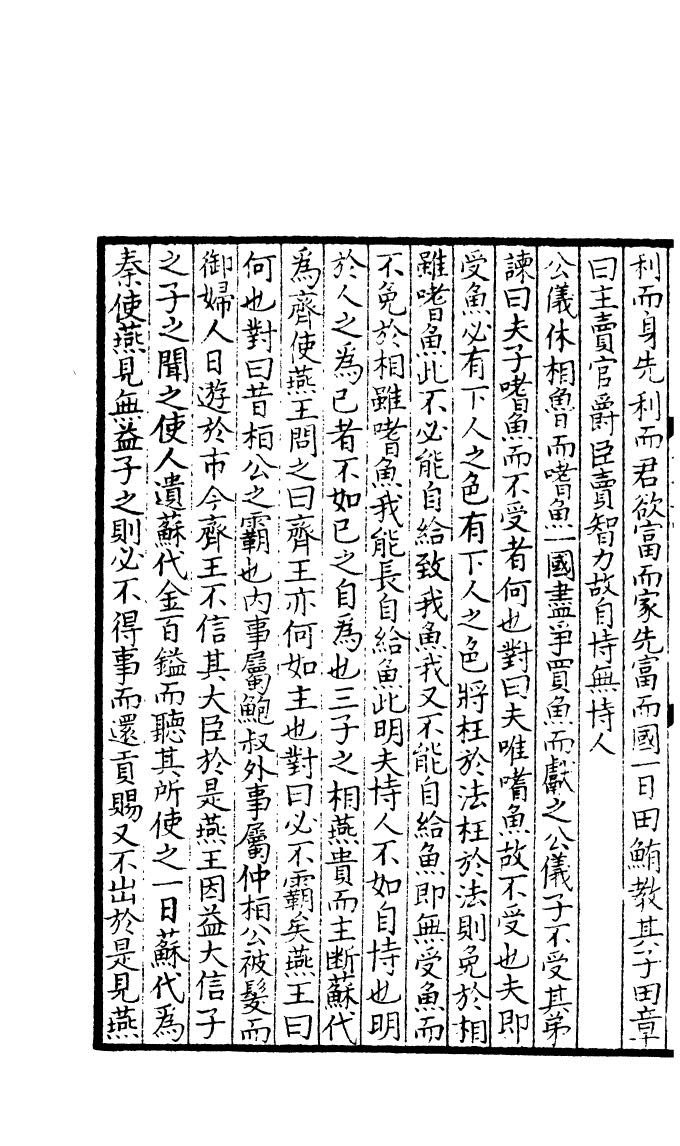 利而身先利而君欲富而家先富而國一日田鮪教其子田章
曰主賣官爵臣賣智力故自恃無恃人
公儀休相魯而嗜魚一國盡爭買魚而獻之公儀子不受其弟
諫曰夫子嗜魚而不受者何也對曰夫唯嗜魚故不受也夫即
受魚必有下人之色有下人之色將枉於法枉於法則免於相
雖嗜魚此不必能自給致我魚我又不能自給魚即無受魚而
不免於相雖嗜魚我能長自給魚此明夫恃人不如自恃也明
於人之為已者不如已之自為也三子之相燕貴而主斷蘇代
為齊使燕王問之曰齊王亦何如主也對曰必不霸矣燕王曰
何也對曰昔桓公之霸也內事屬鮑叔外事屬仲桓公被髮而
御婦人日遊於市今齊王不信其大臣於是燕王因益大信子
之子之聞之使人遺蘇代金百鎰而聽其所使之一日蘇代為
秦使燕見無益子之則必不得事而還貢賜又不出於是見燕